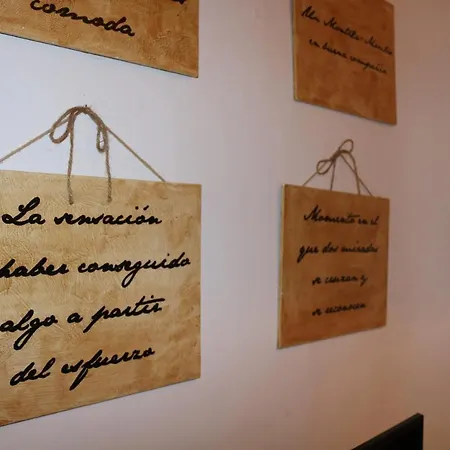 comoda
La sensación
haber conseguido
algo a partir
del esfuerzo
Un Montilla-Moriles
en buena compañía
Momento en el
que dos miradas
se cruzan y
se reconocen